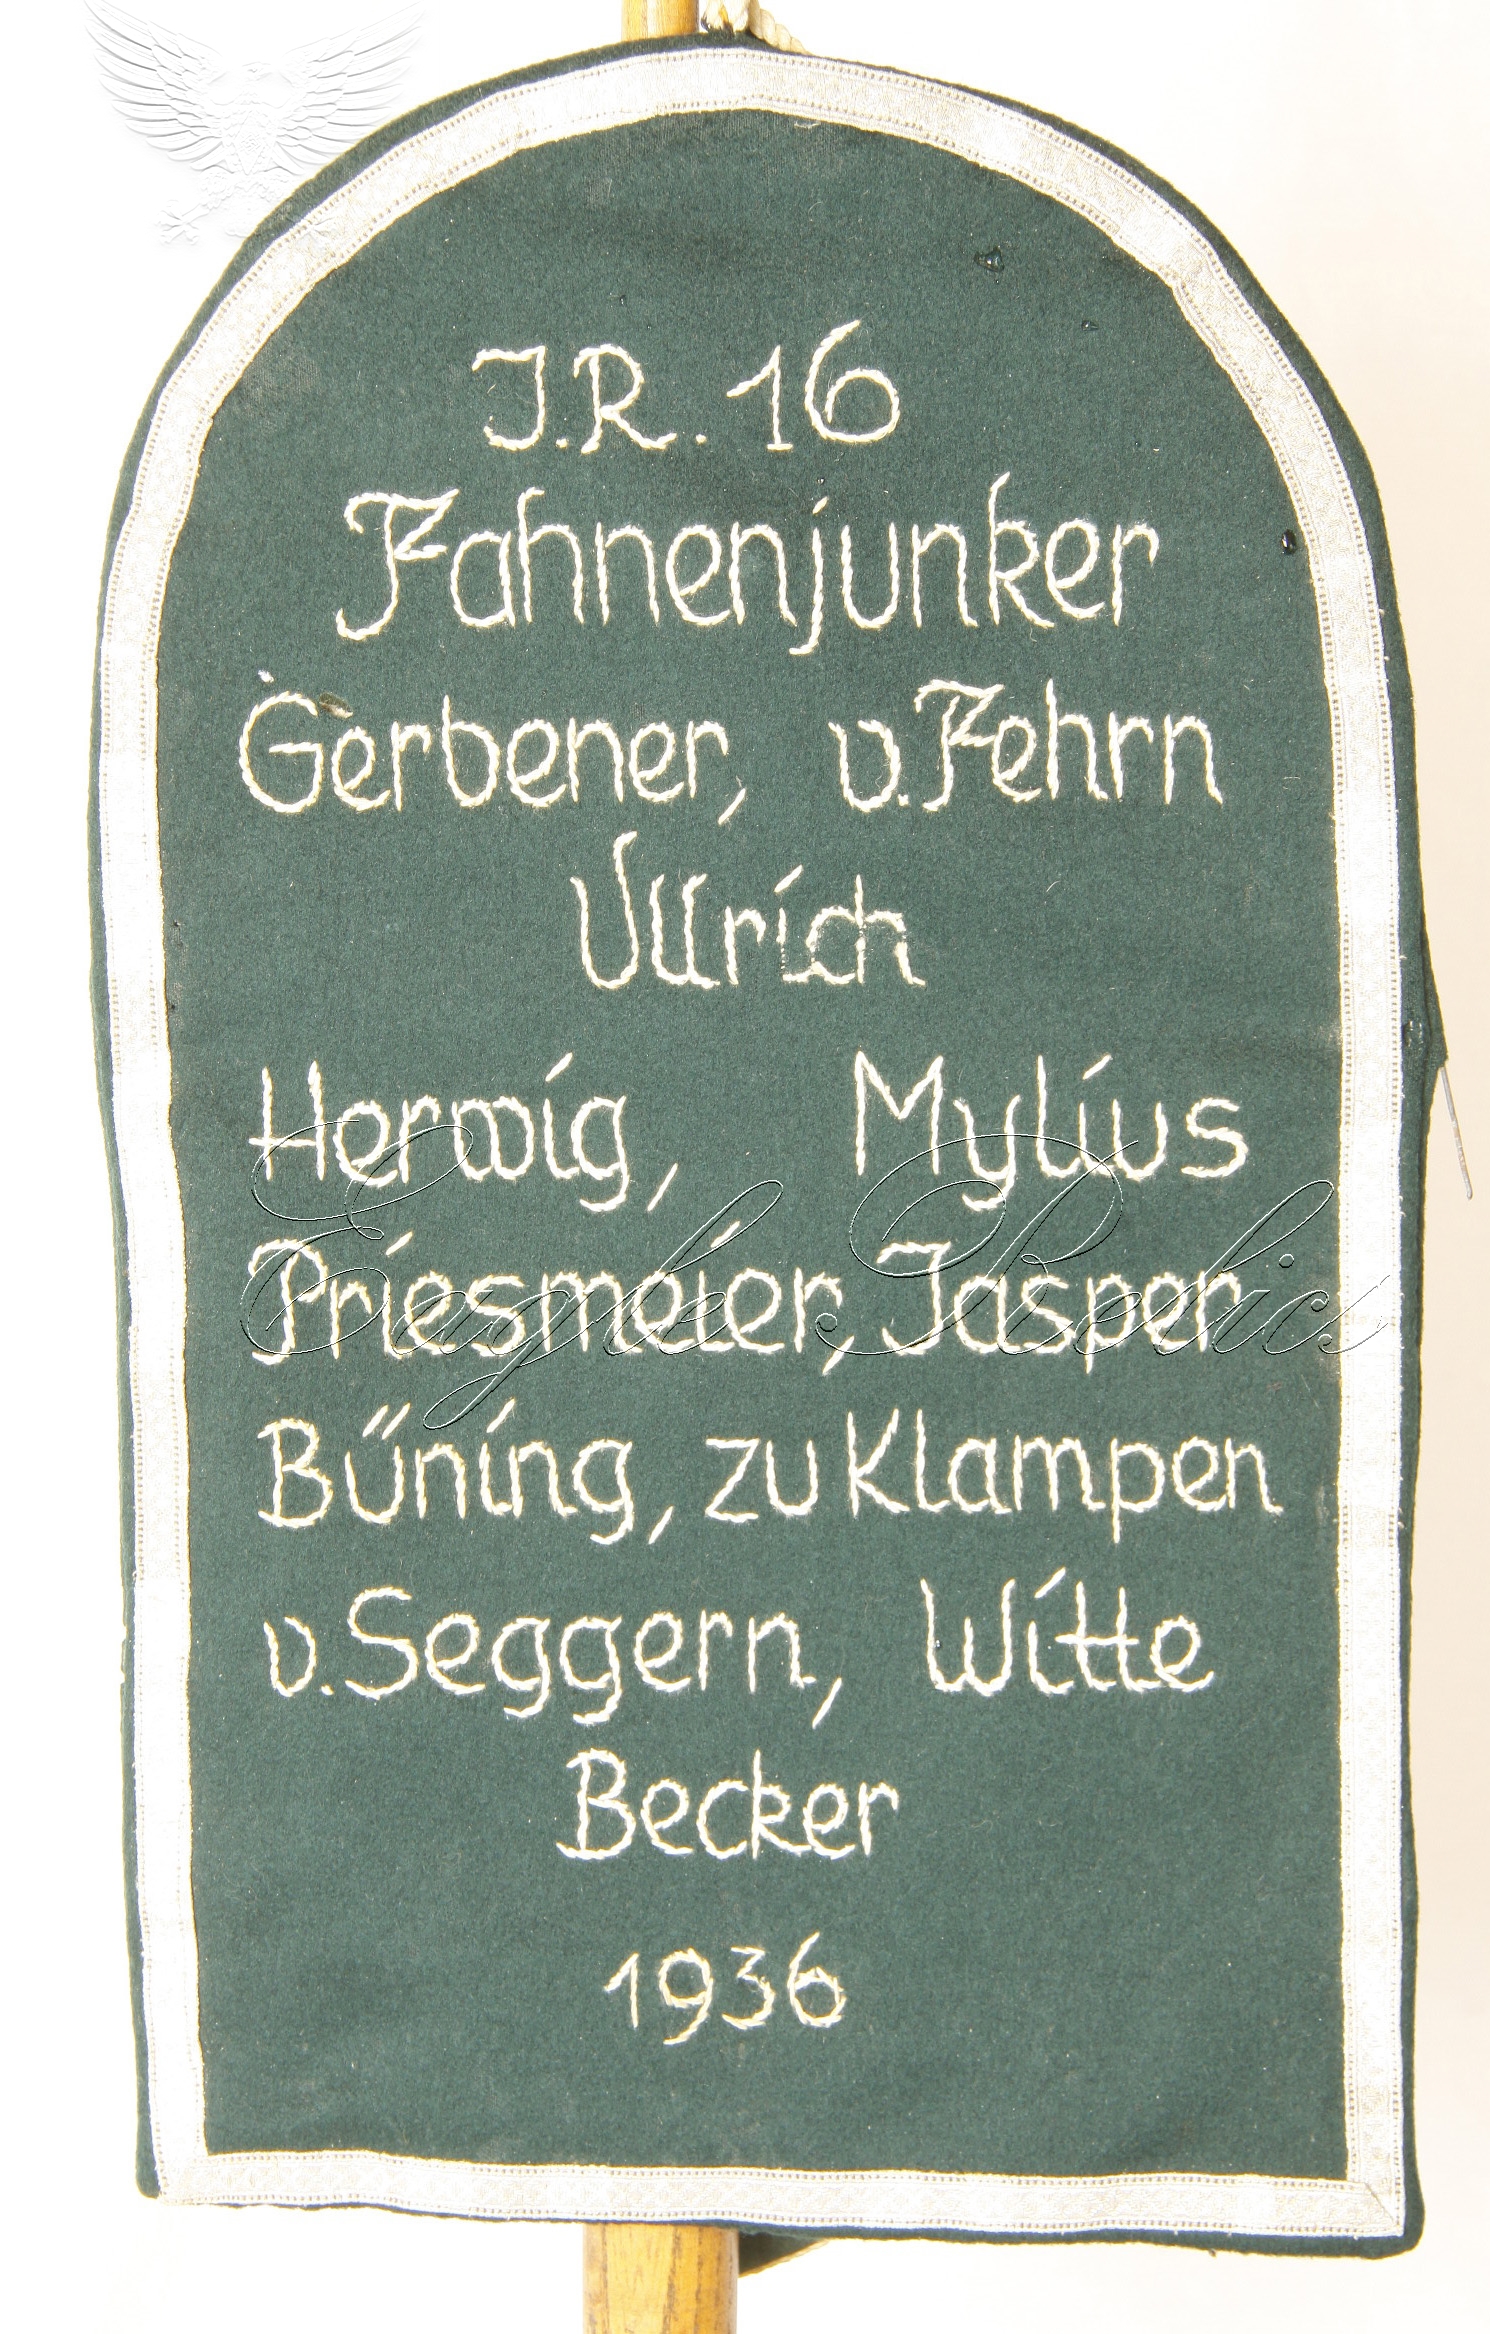 J.R. 16
Fahnenjunker
Gerbener, v. Fehrn
Ullrich
Herwig, Mylius
Priesmeier, Jasper
Büning, zu Klampen
v. Seggern, Witte
Becker
1936
Eagle Relics